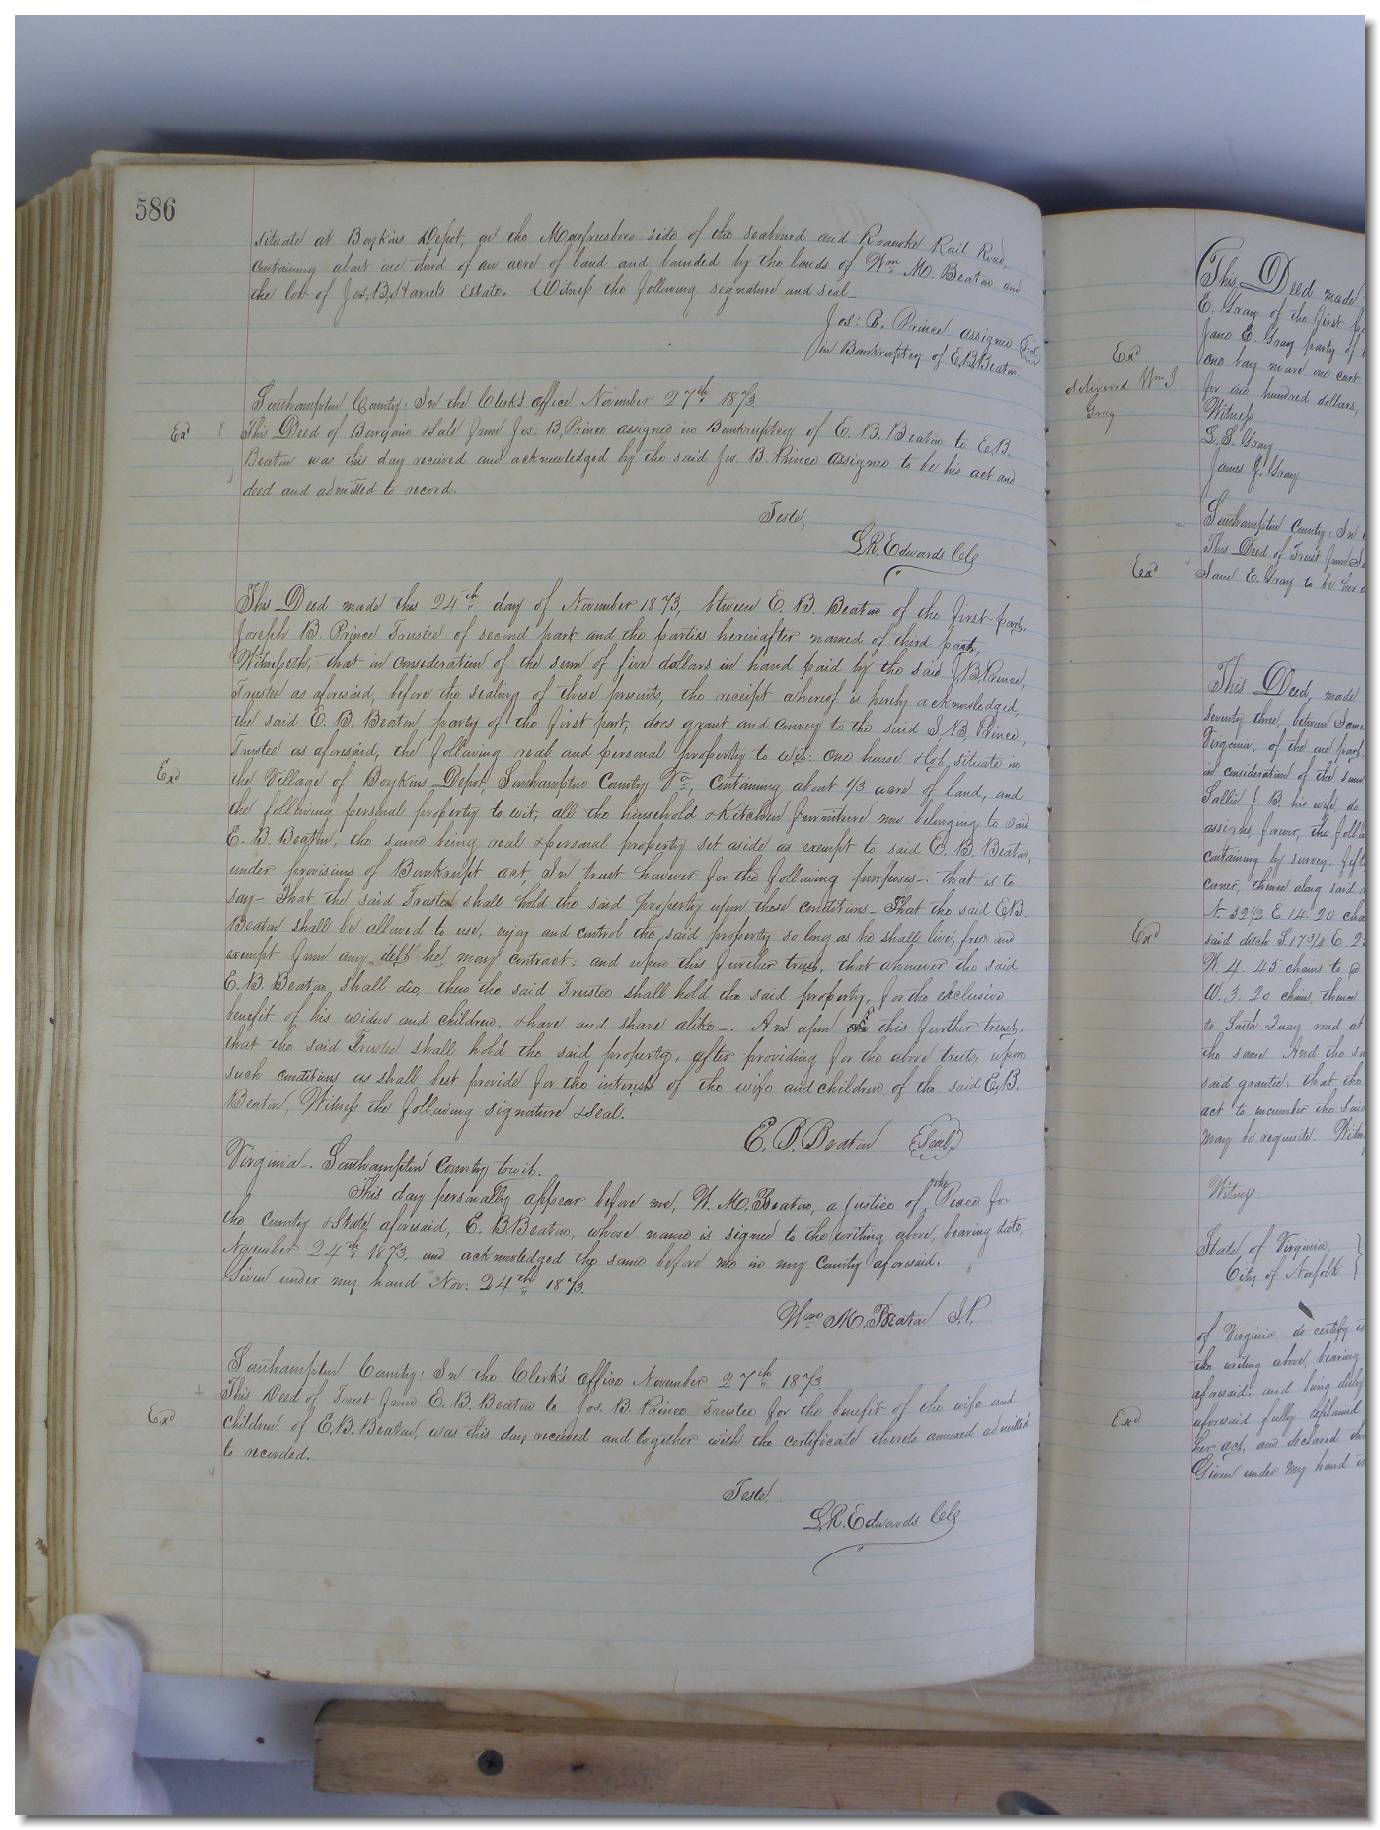 586
situate at Boykins Depot, on the Murfreesboro side of the Seaboard and Roanoke Rail Road,
containing about one third of an acre of land and bounded by the lands of Wm M. Beaton and
the lot of Jos. B. Harrel's Estate. Witness the following signature and seal_
Jos: B. Prince assignee {Seal}
in Bankruptcy of E.B. Beaton
Southampton County: In the Clerk's office November 27th 1873
Exd
This Deed of Bargain & Sale from Jos. B. Prince assignee in Bankruptcy of E. B. Beaton to E.B.
Beaton was this day received and acknowledged by the said Jos. B. Prince assignee to be his act and
deed and admitted to record.
Teste,
L.R. Edwards Clk
This Deed made this 24th day of November 1873, btween E. B. Beaton of the first part,
Joseph B. Prince Trustee of second part and the parties hereinafter named of third part,
Witnesseth, that in consideration of the sum of five dollars in hand paid by the said J.B. Prince,
Trustee as aforesaid, before the sealing of these presents, the receipt whereof is hereby acknowledged,
the said E. B. Beaton, party of the first part, does grant and convey to the said J. B. Prince,
Trustee as aforesaid, the following real and personal property to wit: One house & lot, situate in
Exd
the Village of Boykins Depot, Southampton County Va, Containing about 1/3 acre of land, and
the following personal property to wit, all the household & Kitchen furniture now belonging to said
E. B. Beaton, the same being real & personal property set aside as exempt to said E. B. Beaton,
under provisions of Bankrupt act, In trust however for the following purposes-. that is to
say- That the said Trustee shall hold the said property upon these conditions- That the said E.B.
Beaton shall be allowed to use, enjoy and control the said property so long as he shall live, free and
exempt from any debt he may contract; and upon this further trust, that whenever the said
E. B. Beaton, shall die, then the said Trustee shall hold the said property, for the exclusive
benefit of his widow and children, share and share alike-. And upon this further trust,
that the said Trustee shall hold the said property, after providing for the above trusts, upon
such conditions as shall best provide for the interest of the wife and children of the said E.B.
Beaton, Witness the following signature & seal.
E. B. Beaton {Seal}
Virginia-. Southampton County towit.
This day personally appear before me, W. M. Beaton, a justice of the Peace for
the County & State aforesaid, E. B. Beaton, whose name is signed to the writing above, bearing date,
November 24th 1873, and acknowledged the same before me in my County aforesaid.
Given under my hand Nov: 24th 1873.
Wm M. Beaton J.P.
Southampton County: In the Clerk's office November 27th 1873
Exd
This Deed of Trust from E. B. Beaton to Jos. B. Prince Trustee for the benefit of the wife and
children of E.B. Beaton, was this day received and together with the certificate thereto annexed admitted
to recorded.
Teste,
L.R. Edwards Clk
This Deed made
E. Gray of the first
Jane E. Gray party of
Exd
delivered Wm J
Gray
one bay mare one cart
for one hundred dollars,
Witness
L. S. Gray
James Gray
Southampton County: In
This Deed of Trust from
Exd
Jane E. Gray to be her
This Deed, made
Seventy three, between
Virginia, of the one part,
in consideration of the sum
Sallie J. B. his wife do
assigns forever, the
containing by survey
corner, thence along said
N. 32 1/2 E. 14.20
Exd
said ditch S. 17 3/4 E.
W. 4.45 chains to a
W. 3.20 chains, thence
to road at
the same. And the
said grantee, that the
act to encumber the said
may be requisite.
Witness
State of Virginia }
City of Norfolk }
of Virginia do certify
the writing above, bearing
aforesaid: and being duly
Exd
aforesaid fully explained
her act, and declared
Given under my hand